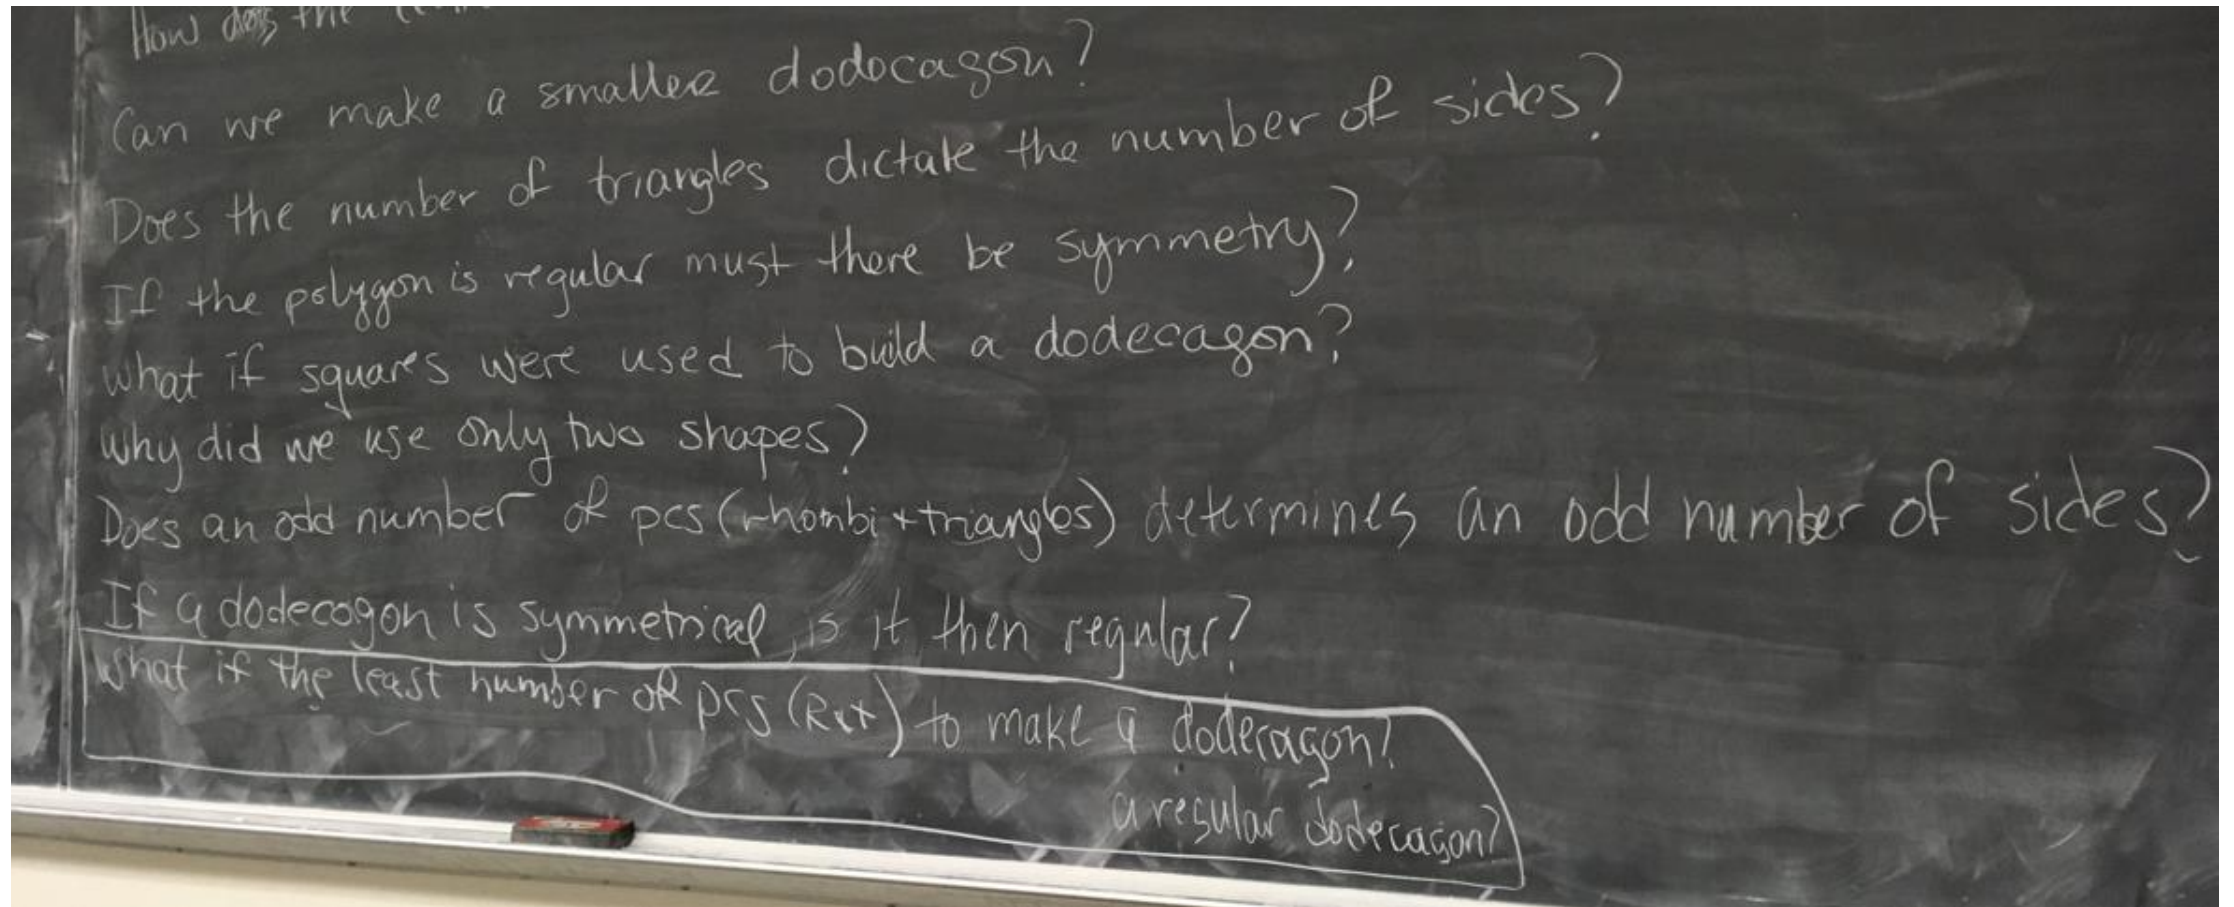 How does the
Can we make a smaller dodocagon?
Does the number of triangles dictate the number of sides?
If the polygon is regular must there be symmetry?
What if squares were used to build a dodecagon?
Why did we use only two shapes?
Does an odd number of pcs (rhombi + triangles) determines an odd number of sides?
If a dodecogon is symmetrical, is it then regular?
What if the least number of pcs (R+t) to make a dodecagon?
a regular dodecagon?